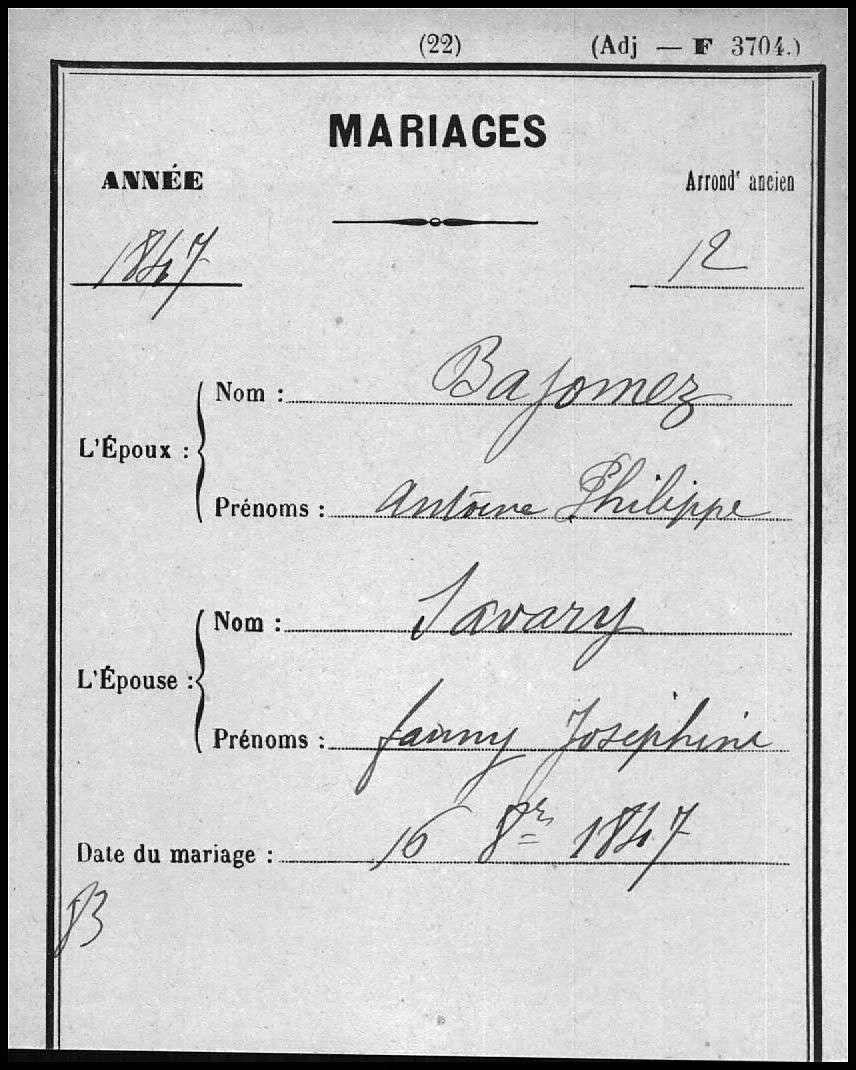 (22) (Adj — F 3704.)
MARIAGES
ANNÉE
Arrondt ancien
1847
12
L'Époux :
Nom : Bajomez
Prénoms : Antoine Philippe
L'Épouse :
Nom : Savary
Prénoms : fanny Josephine
Date du mariage : 16 8re 1847